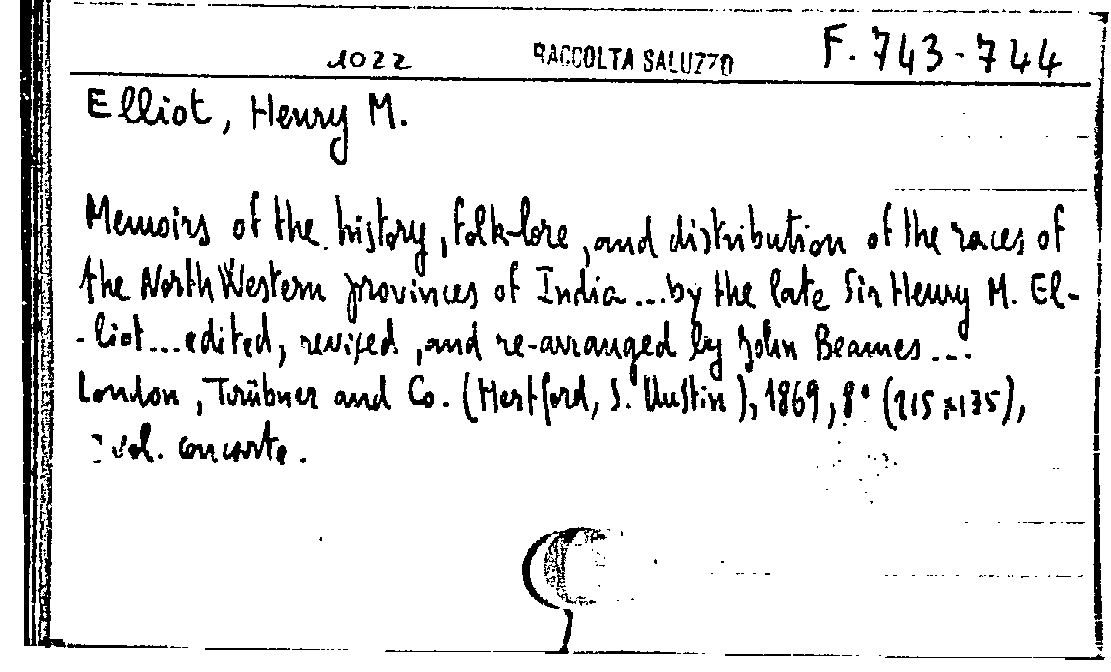 1022 RACCOLTA SALUZZO F. 743-744
Elliot, Henry M.
Memoirs of the history, folk-lore, and distribution of the races of
the North Western provinces of India...by the late Sir Henry M. El-
-liot...edited, revised, and re-arranged by John Beames...
London, Trübner and Co. (Hertford, S. Austin), 1869, 8° (215×135),
vol. con carte.